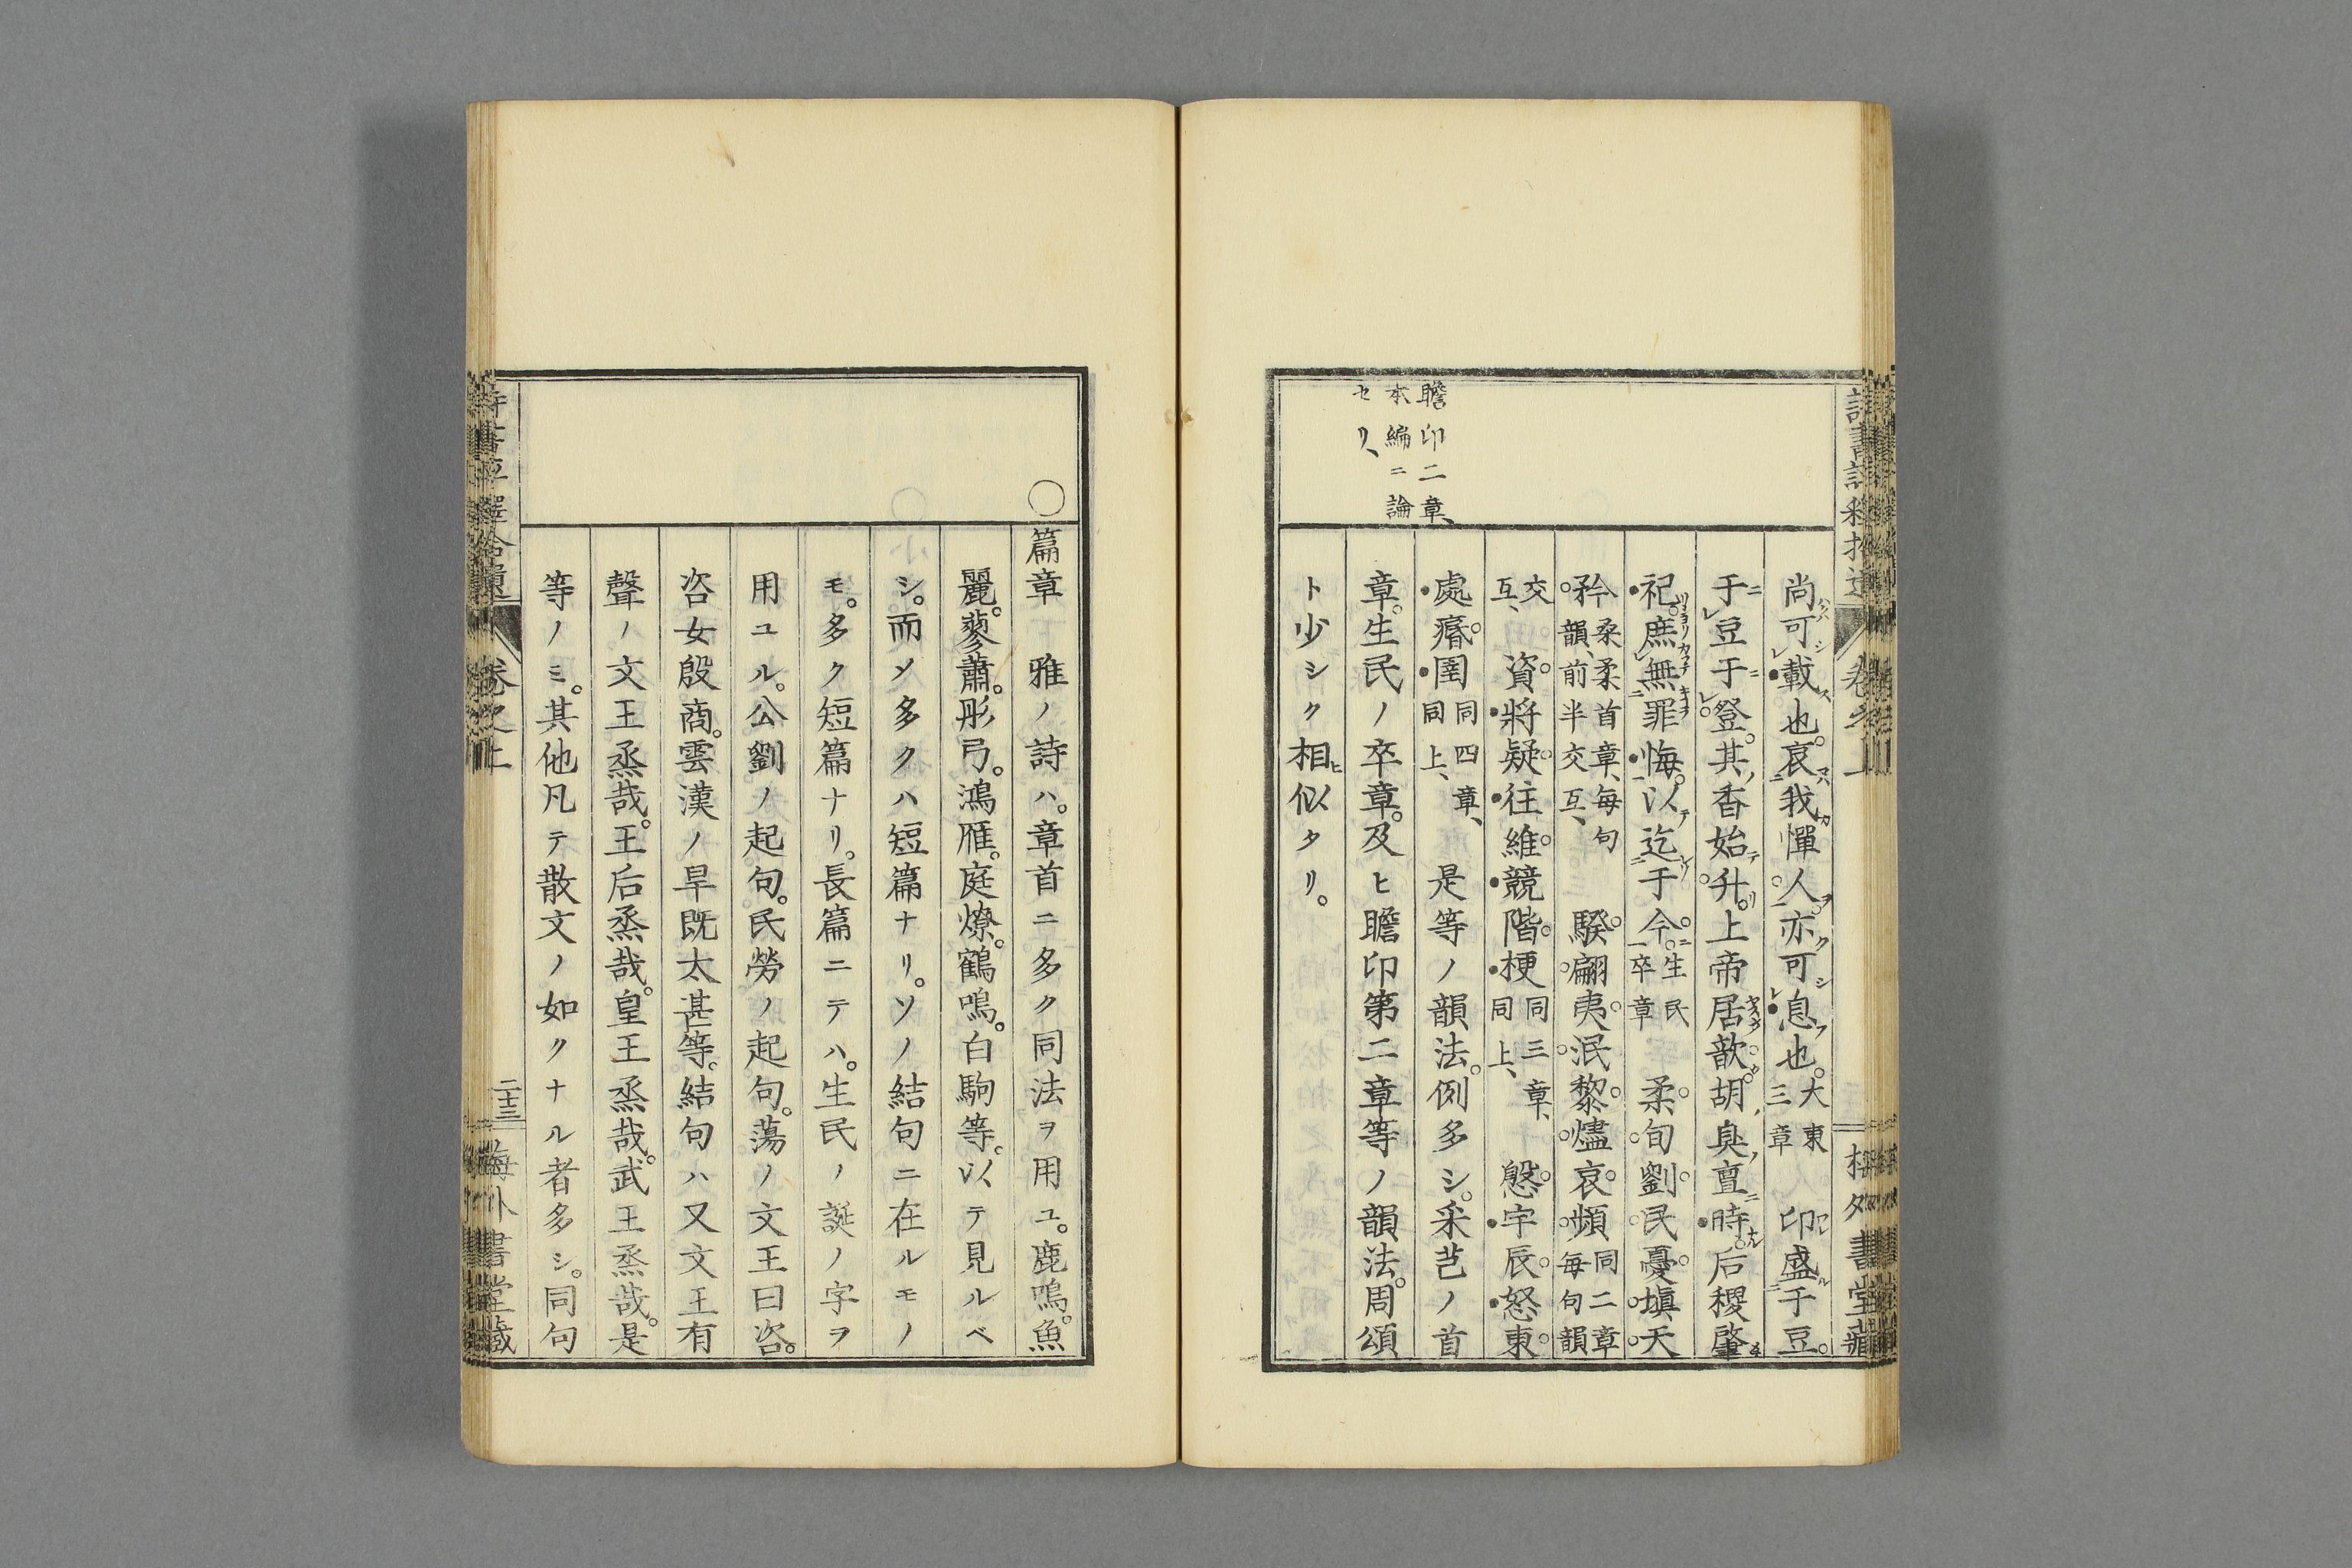 瞻卬二章、
本編ニ論
セリ、
尚可載也。哀我憚人。亦可息也。大東三章　卬盛于豆。
于豆于登。其香始升。上帝居歆。胡臭亶時。后稷肇
祀。庶無罪悔。以迄于今。生民卒章　柔旬劉民憂塡天
矜桑柔首章、每句韻、前半交互、　騤翩夷泯黎燼哀頻同二章每句韻
交互、　資將疑往維競階梗同三章、同上、　慇宇辰怒東
處瘽圉同四章、同上、　是等ノ韻法。例多シ。采芑ノ首
章。生民ノ卒章。及ヒ瞻卬第二章等ノ韻法。周頌
ト少シク相似タリ。
〇
篇章　雅ノ詩ハ。章首ニ多ク同法ヲ用ユ。鹿鳴。魚
麗。蓼蕭。彤弓。鴻雁。庭燎。鶴鳴。白駒等。以テ見ルベ
シ。而メ多クハ短篇ナリ。ソノ結句ニ在ルモノ
モ。多ク短篇ナリ。長篇ニテハ。生民ノ誕ノ字ヲ
用ユル。公劉ノ起句。民勞ノ起句。蕩ノ文王曰咨。
咨女殷商。雲漢ノ旱既太甚等。結句ハ又文王有
聲ノ文王烝哉。王后烝哉。皇王烝哉。武王烝哉。是
等ノミ。其他凡テ散文ノ如クナル者多シ。同句
卷之上
二十三
書堂藏